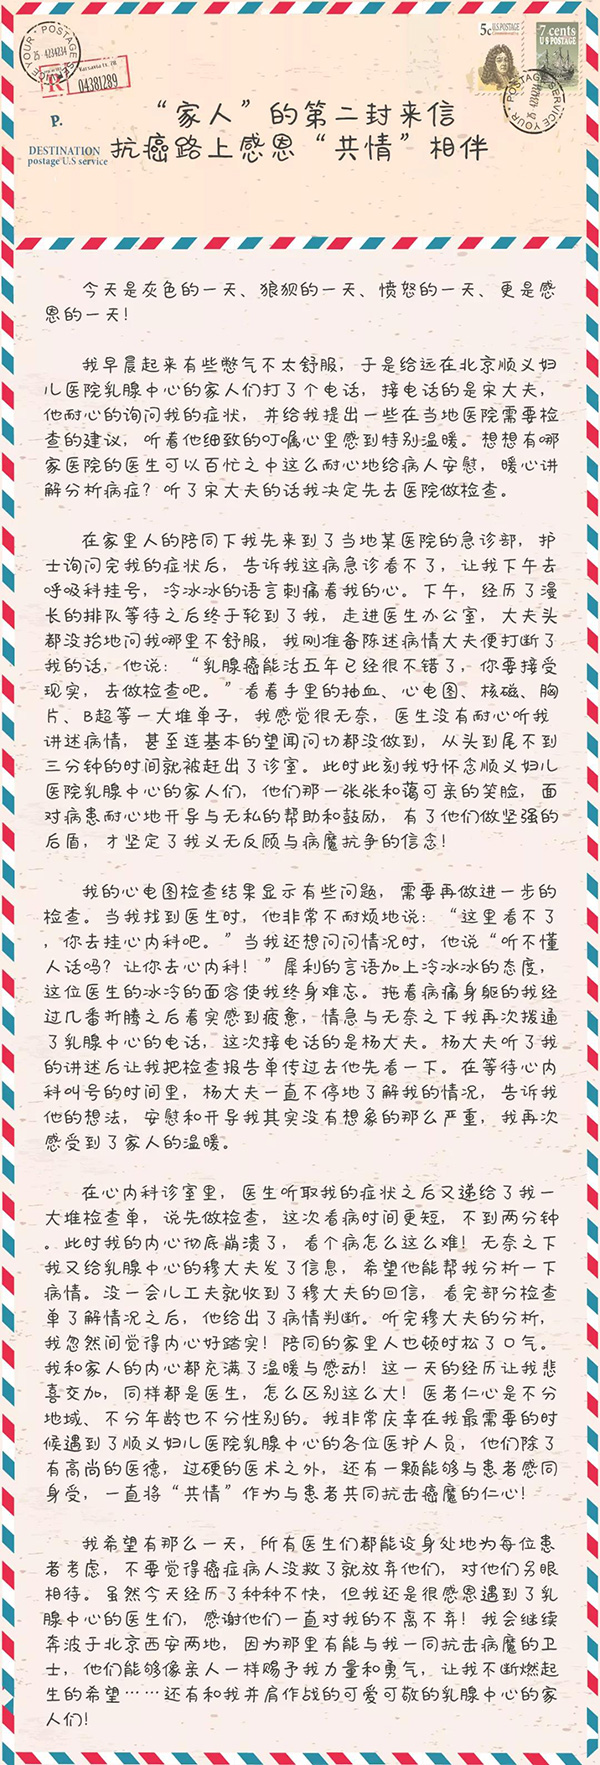 25 4234234
POSTAGE SERVICE YOUR
R
Warranty Tr. 2R
04381289
P.
DESTINATION
postage U.S service
5c US POSTAGE
7 cents
U S POSTAGE
POSTAGE SERVICE YOUR
“家人”的第二封来信
抗癌路上感恩“共情”相伴
今天是灰色的一天、狼狈的一天、愤怒的一天、更是感
恩的一天!
我早晨起来有些憋气不太舒服，于是给远在北京顺义妇
儿医院乳腺中心的家人们打了个电话，接电话的是宋大夫，
他耐心的询问我的症状，并给我提出一些在当地医院需要检
查的建议，听着他细致的叮嘱心里感到特别温暖。想想有哪
家医院的医生可以百忙之中这么耐心地给病人安慰，暖心讲
解分析病症？听了宋大夫的话我决定先去医院做检查。
在家里人的陪同下我先来到了当地某医院的急诊部，护
士询问完我的症状后，告诉我这病急诊看不了，让我下午去
呼吸科挂号，冷冰冰的语言刺痛着我的心。下午，经历了漫
长的排队等待之后终于轮到了我，走进医生办公室，大夫头
都没抬地问我哪里不舒服，我刚准备陈述病情大夫便打断了
我的话，他说：“乳腺癌能活五年已经很不错了，你要接受
现实，去做检查吧。”看着手里的抽血、心电图、核磁、胸
片、B超等一大堆单子，我感觉很无奈，医生没有耐心听我
讲述病情，甚至连基本的望闻问切都没做到，从头到尾不到
三分钟的时间就被赶出了诊室。此时此刻我好怀念顺义妇儿
医院乳腺中心的家人们，他们那一张张和蔼可亲的笑脸，面
对病患耐心地开导与无私的帮助和鼓励，有了他们做坚强的
后盾，才坚定了我义无反顾与病魔抗争的信念!
我的心电图检查结果显示有些问题，需要再做进一步的
检查。当我找到医生时，他非常不耐烦地说：“这里看不了
，你去挂心内科吧。”当我还想问问情况时，他说“听不懂
人话吗？让你去心内科！”犀利的言语加上冷冰冰的态度，
这位医生的冰冷的面容使我终身难忘。拖着病痛身躯的我经
过几番折腾之后着实感到疲惫，情急与无奈之下我再次拨通
了乳腺中心的电话，这次接电话的是杨大夫。杨大夫听了我
的讲述后让我把检查报告单传过去他先看一下。在等待心内
科叫号的时间里，杨大夫一直不停地了解我的情况，告诉我
他的想法，安慰和开导我其实没有想象的那么严重，我再次
感受到了家人的温暖。
在心内科诊室里，医生听取我的症状之后又递给了我一
大堆检查单，说先做检查，这次看病时间更短，不到两分钟
。此时我的内心彻底崩溃了，看个病怎么这么难！无奈之下
我又给乳腺中心的穆大夫发了信息，希望他能帮我分析一下
病情。没一会儿工夫就收到了穆大夫的回信，看完部分检查
单了解情况之后，他给出了病情判断。听完穆大夫的分析，
我忽然间觉得内心好踏实！陪同的家里人也顿时松了口气。
我和家人的内心都充满了温暖与感动！这一天的经历让我悲
喜交加，同样都是医生，怎么区别这么大！医者仁心是不分
地域、不分年龄也不分性别的。我非常庆幸在我最需要的时
候遇到了顺义妇儿医院乳腺中心的各位医护人员，他们除了
有高尚的医德，过硬的医术之外，还有一颗能够与患者感同
身受，一直将“共情”作为与患者共同抗击癌魔的仁心!
我希望有那么一天，所有医生们都能设身处地为每位患
者考虑，不要觉得癌症病人没救了就放弃他们，对他们另眼
相待。虽然今天经历了种种不快，但我还是很感恩遇到了乳
腺中心的医生们，感谢他们一直对我的不离不弃！我会继续
奔波于北京西安两地，因为那里有能与我一同抗击病魔的卫
士，他们能够像亲人一样赐予我力量和勇气，让我不断燃起
生的希望……还有和我并肩作战的可爱可敬的乳腺中心的家
人们!